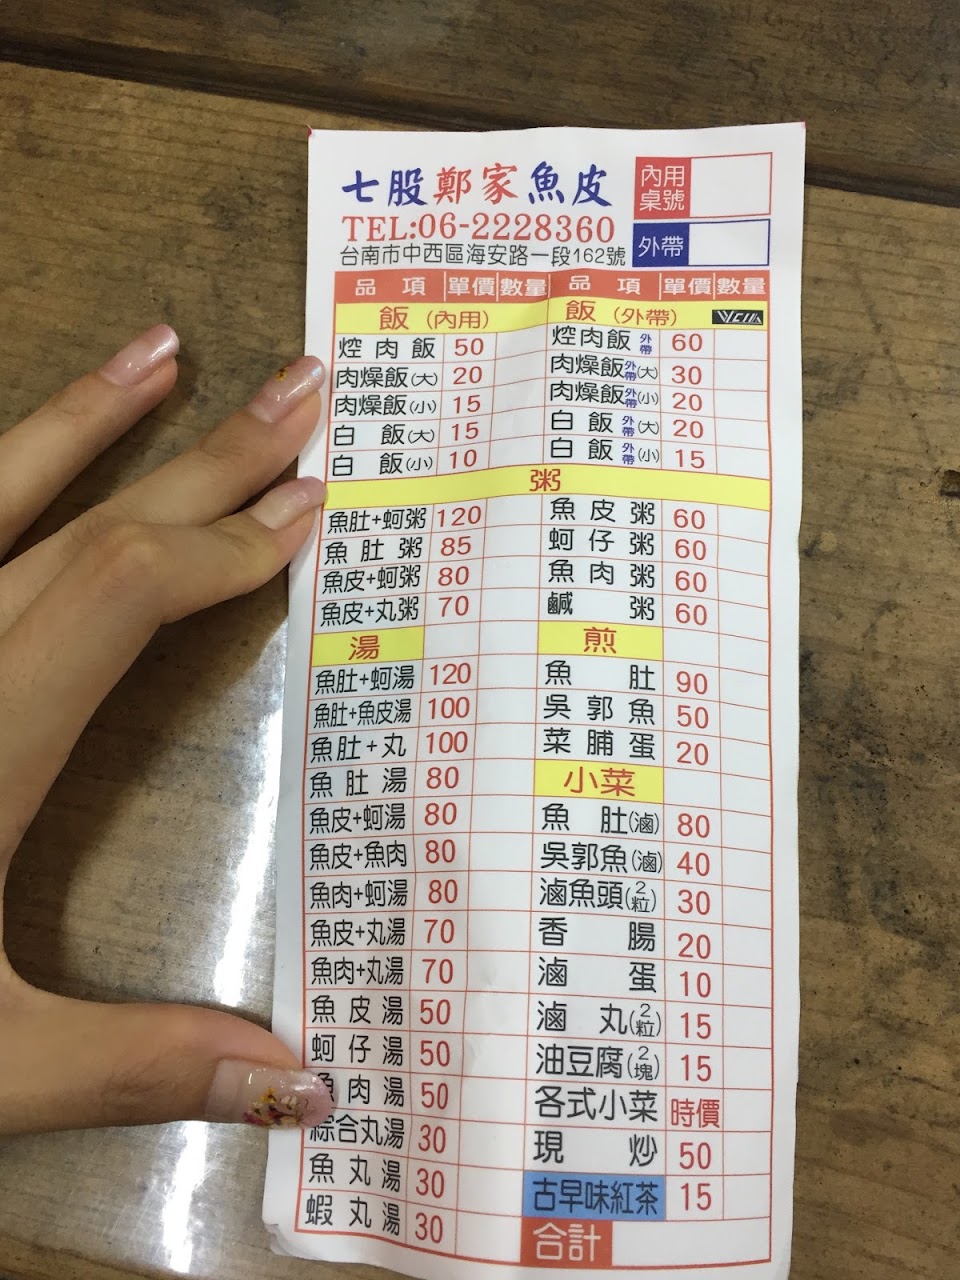 七股鄭家魚皮
TEL:06-2228360
台南市中西區海安路一段162號
內用桌號
外帶
品項 單價 數量 品項 單價 數量
飯(內用) 飯(外帶) VCIA
焢肉飯 50 焢肉飯外帶 60
肉燥飯(大) 20 肉燥飯外帶(大) 30
肉燥飯(小) 15 肉燥飯外帶(小) 20
白飯(大) 15 白飯外帶(大) 20
白飯(小) 10 白飯外帶(小) 15
粥
魚肚+蚵粥 120 魚皮粥 60
魚肚粥 85 蚵仔粥 60
魚皮+蚵粥 80 魚肉粥 60
魚皮+丸粥 70 鹹粥 60
湯 煎
魚肚+蚵湯 120 魚肚 90
魚肚+魚皮湯 100 吳郭魚 50
魚肚+丸 100 菜脯蛋 20
魚肚湯 80 小菜
魚皮+蚵湯 80 魚肚(滷) 80
魚皮+魚肉 80 吳郭魚(滷) 40
魚肉+蚵湯 80 滷魚頭(2粒) 30
魚皮+丸湯 70 香腸 20
魚肉+丸湯 70 滷蛋 10
魚皮湯 50 滷丸(2粒) 15
蚵仔湯 50 油豆腐(2塊) 15
魚肉湯 50 各式小菜 時價
綜合丸湯 30 現炒 50
魚丸湯 30 古早味紅茶 15
蝦丸湯 30 合計